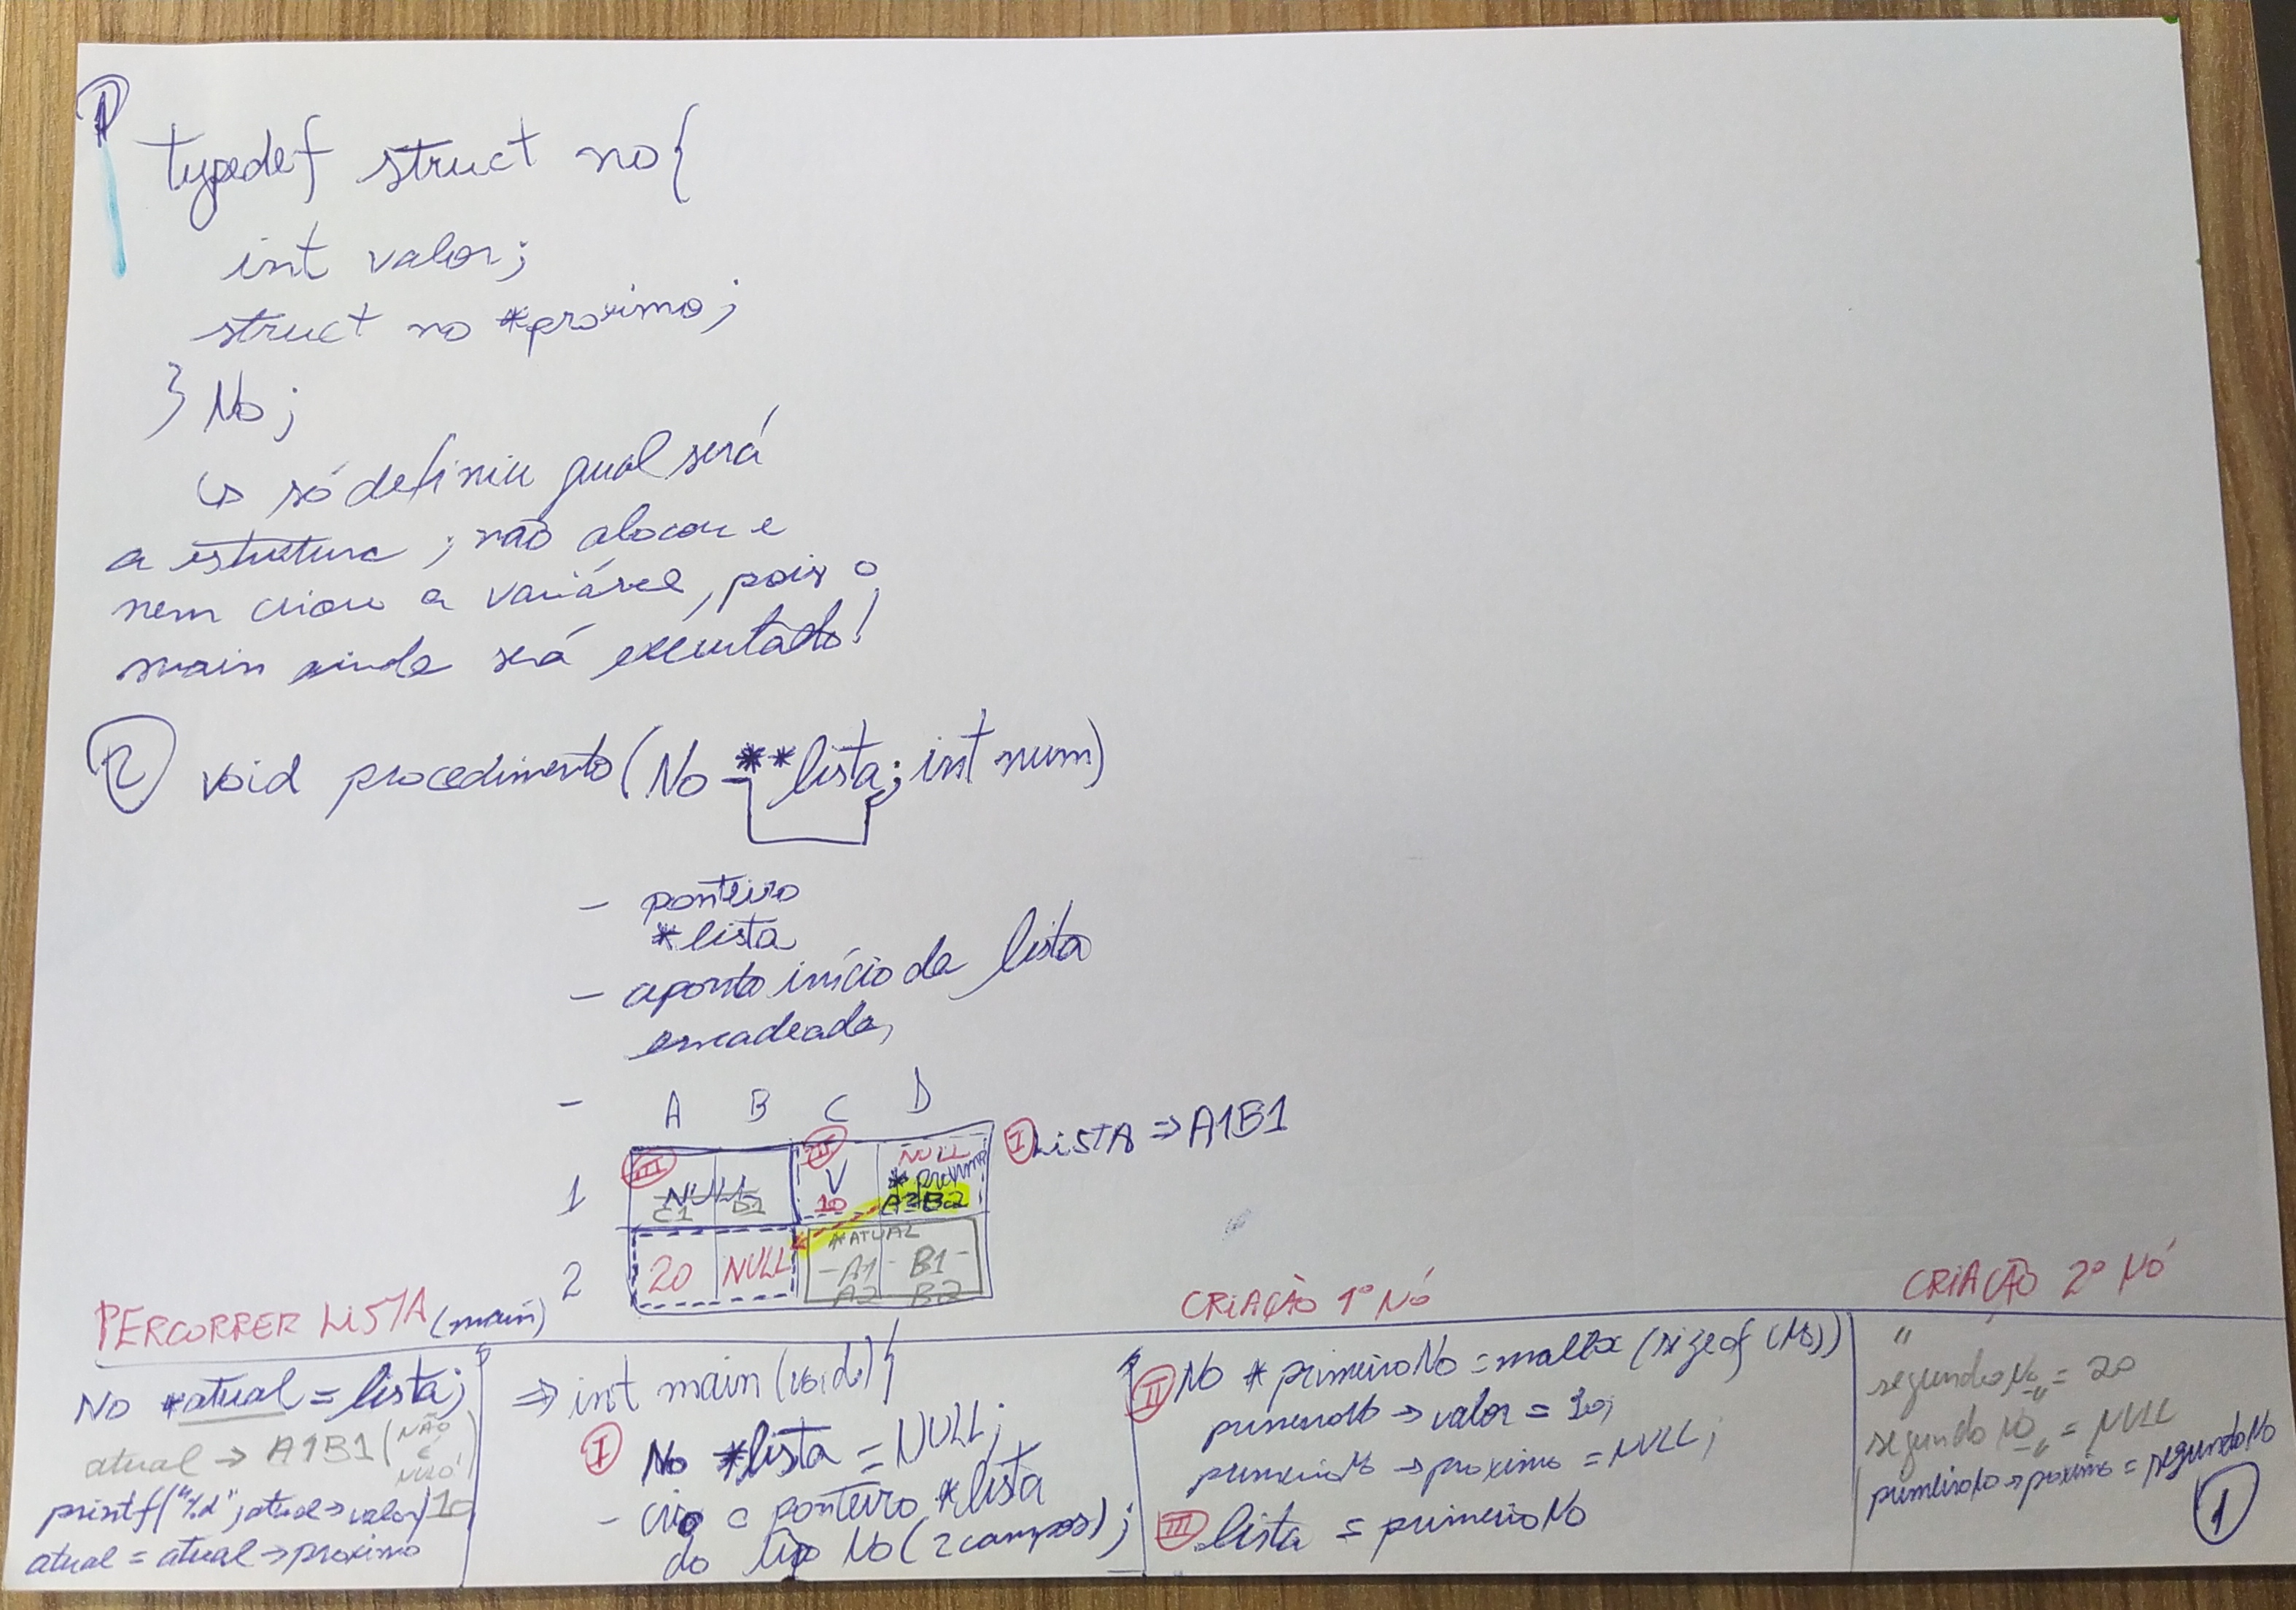 1
typedef struct no{
int valor;
struct no *proximo;
} No;
↳ só definiu qual será
a estrutura; não alocou e
nem criou a variável, pois o
main ainda será executado!
2 void procedimento (No **lista; int num)
- ponteiro
*lista
- aponta início da lista
encadeada,
-
A B C D
I LISTA ⇒ A1B1
1 III NULL C1 D1 II V 10 NULL *proximo A2B2
2 20 NULL *ATUAL -A1- B1- A2 B2
PERCORRER LISTA (main)
No *atual = lista;
atual → A1B1 (NÃO É NULO!)
printf("%d"; atual→valor) 10
atual = atual→proximo
⇒ int main (void) {
I No *lista = NULL;
- crio o ponteiro *lista
do tipo No (2 campos);
CRIAÇÃO 1º NÓ
II No * primeiroNo = malloc (sizeof (No))
primeiroNo → valor = 10;
primeiroNo → proximo = NULL;
III lista = primeiroNo
CRIAÇÃO 2º NÓ
"
segundoNo " = 20
segundoNo " = NULL
primeiroNo → proximo = segundoNo
1